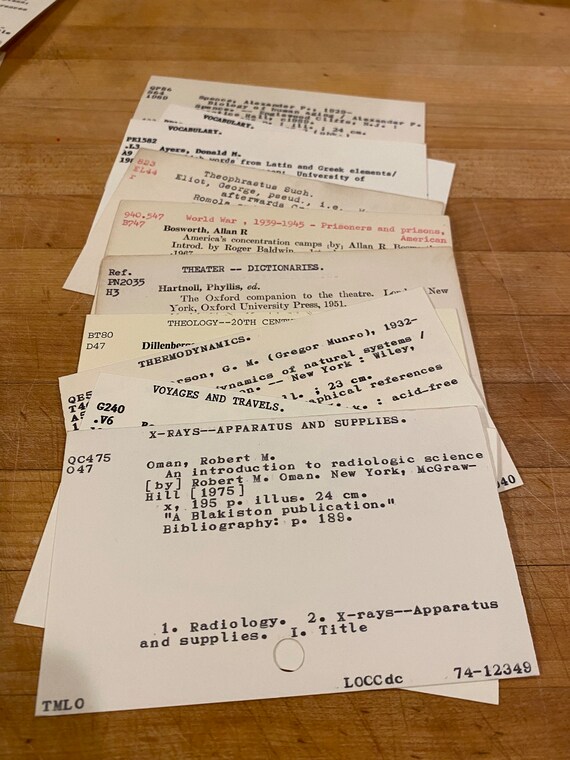 Spence, Alexander P., 1929-
Biology of human aging / Alexander P.
ill. ; 24 cm.
VOCABULARY.
VOCABULARY.
PE1582
Ayers, Donald M.
words from Latin and Greek elements/
University of
823
EL44
r
Theophrastus Such.
Eliot, George, pseud., i.e.,
afterwards
Romola
940.547
B747
World War , 1939-1945 - Prisoners and prisons,
American
Bosworth, Allan R
America's concentration camps ;by; Allan R
Introd. by Roger Baldwin.
Ref.
PN2035
H3
THEATER -- DICTIONARIES.
Hartnoll, Phyllis, ed.
The Oxford companion to the theatre.
York, Oxford University Press, 1951.
BT80
D47
THEOLOGY--20TH
Dillenberger
THERMODYNAMICS.
G. M. (Gregor Munro), 1932-
dynamics of natural systems /
-- New York : Wiley,
; 23 cm.
references
: acid-free
G240
.V6
VOYAGES AND TRAVELS.
X-RAYS--APPARATUS AND SUPPLIES.
QC475
O47
Oman, Robert M.
An introduction to radiologic science
[by] Robert M. Oman. New York, McGraw-
Hill [1975]
x, 195 p. illus. 24 cm.
"A Blakiston publication."
Bibliography: p. 189.
1. Radiology. 2. X-rays--Apparatus
and supplies. I. Title
LOCCdc
74-12349
TMLO